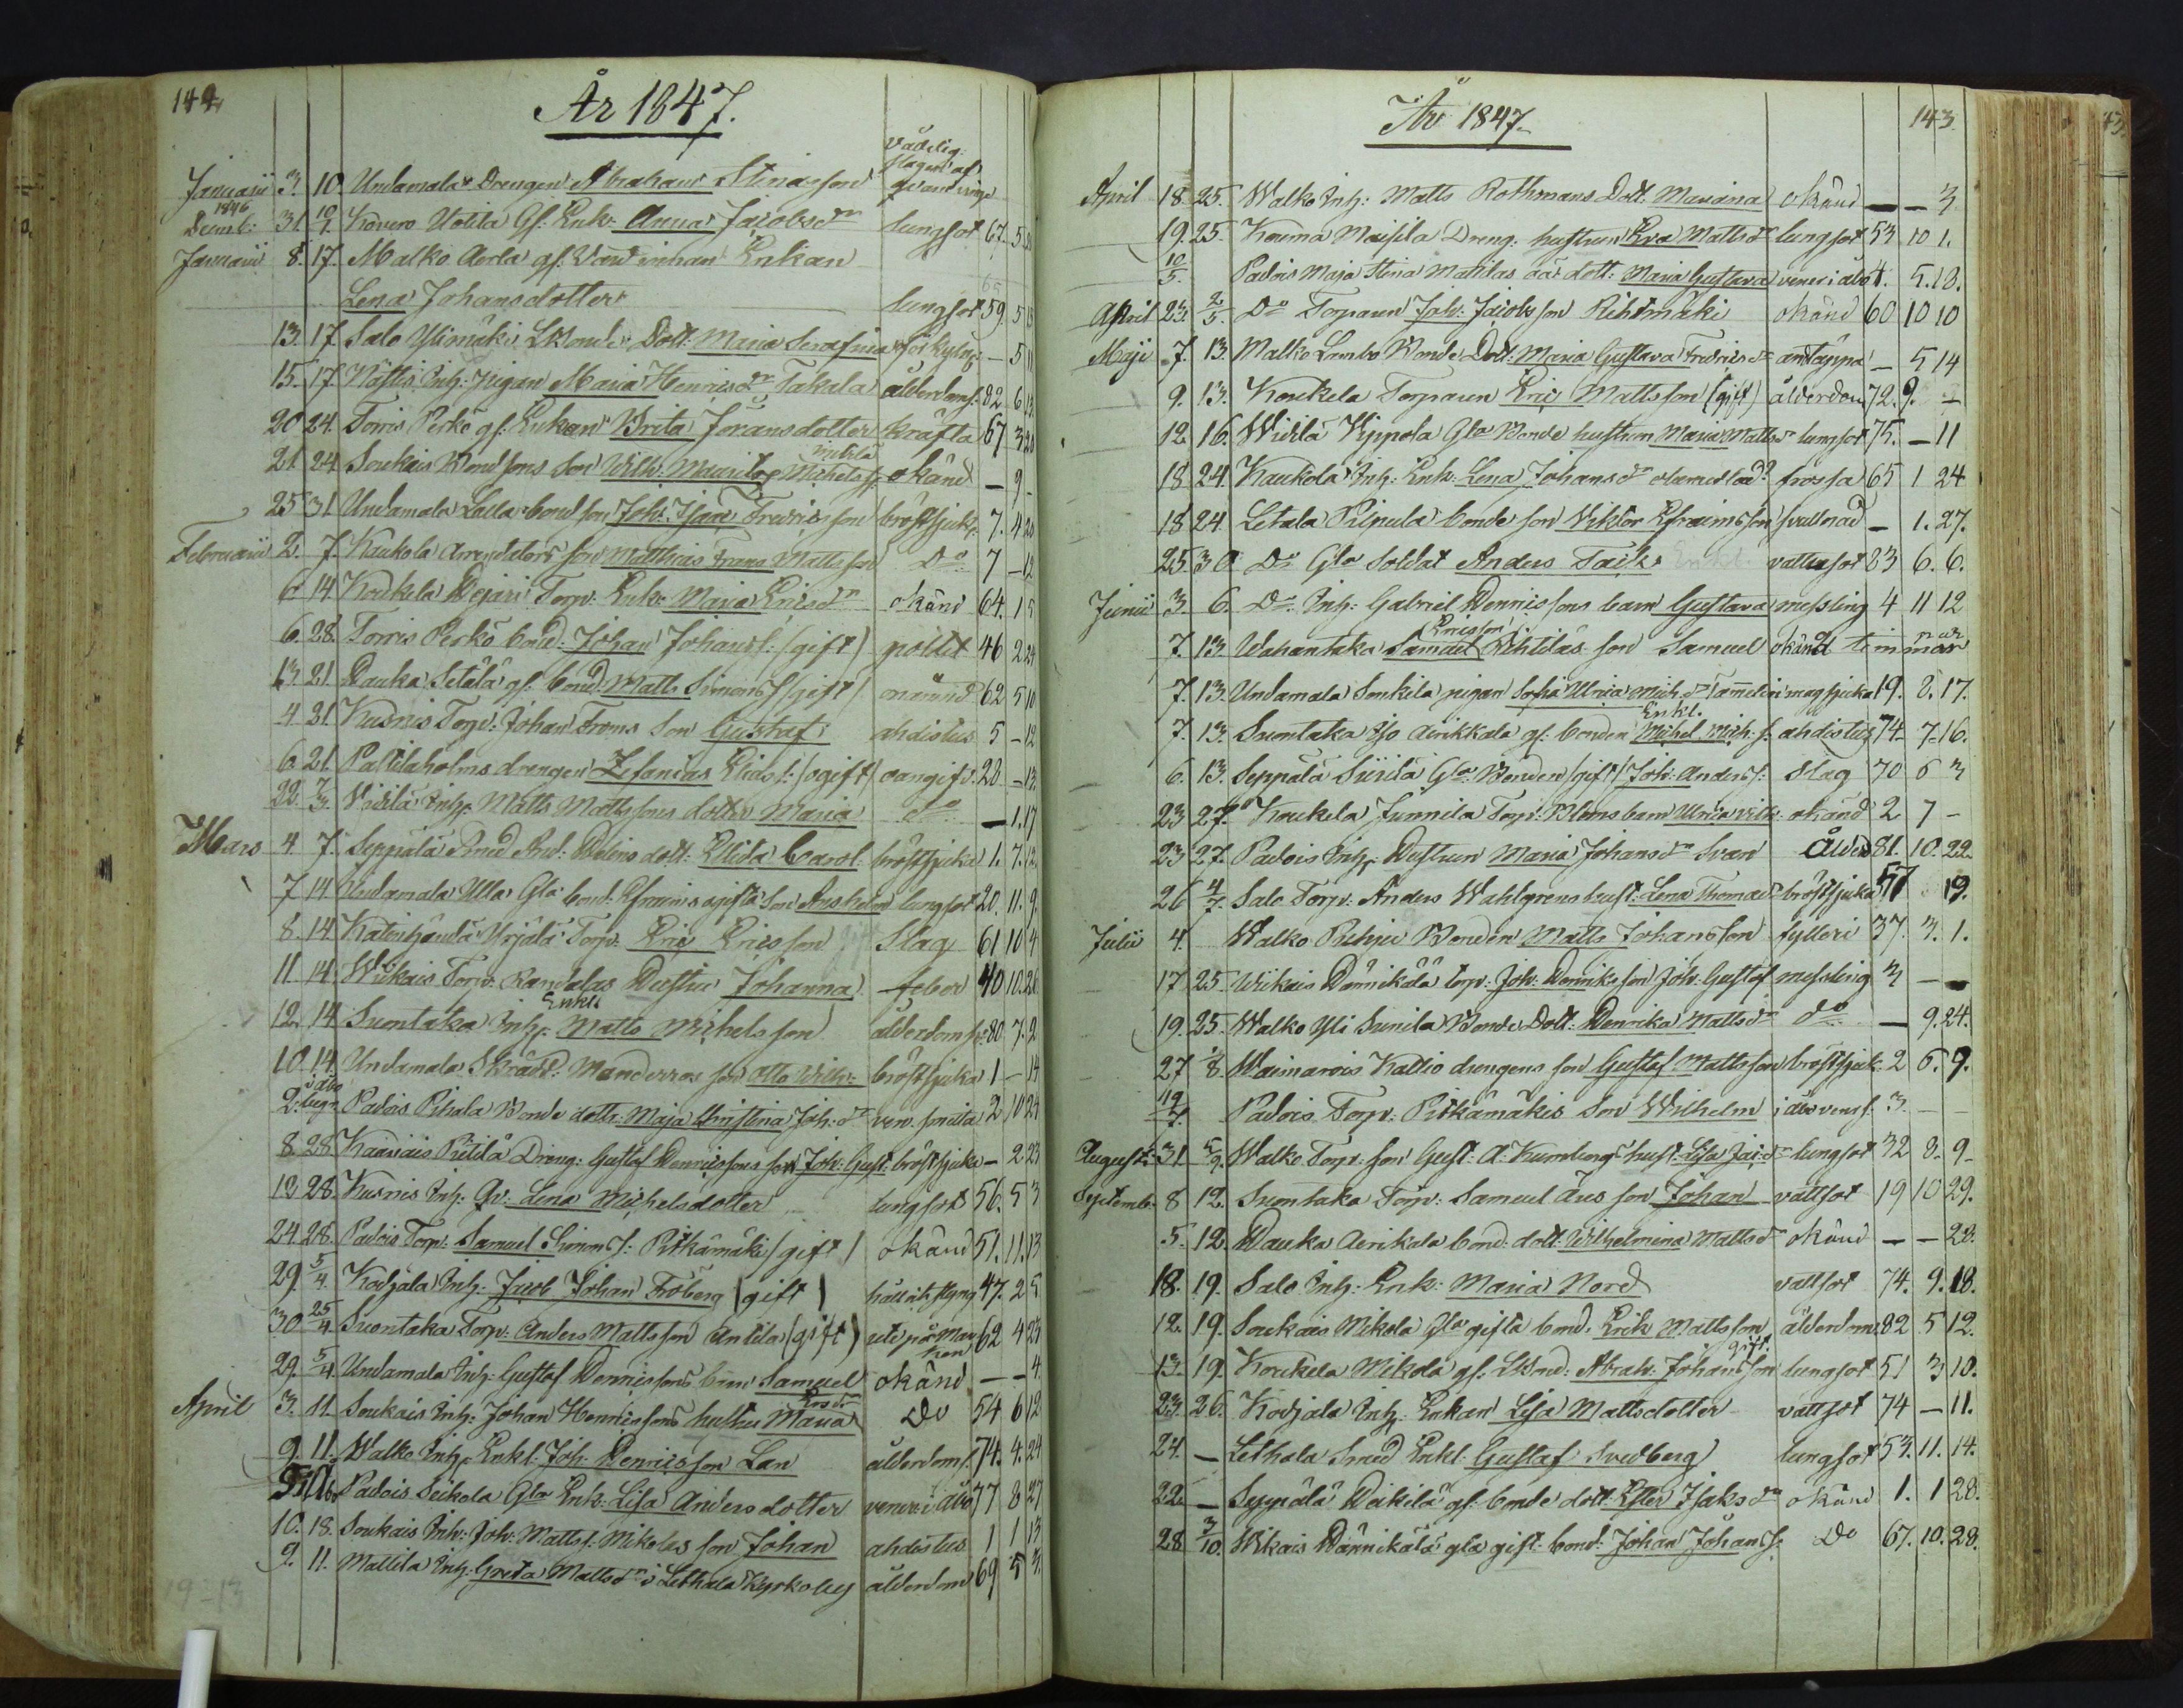 144
År 1847.
Januarii 3. 10. Undamala Drengen Abraham Stinasson vådelig. slagen af qvarnvinge
1846 Decemb: 31. 10/1. Kovero Uotila Gf. Enk: Anna Jacobsdr lungsot 67. 5
Januarii 8. 17. Malko Aerla gf. Enkan
Lena Johansdotter lungsot 59. 5 13
13. 17. Salo Ylimäki Bonde Dott. Maria Serafina förkyln: – 5 11
15. 17. Nästis Inh: pigan Maria Henricsdr Takala ålderdoms. 82 6 13.
20 24. Torris Perkö gf. Enkan Brita Göransdotter kräfta 67 3 20
21. 24 Soukais Bondsons son Wilh. Maurits Michelss: Mikila okänd – 9 –
25 31 Undamala Lalla bond son Joh. Isac Fredricsson bröstsjukd. 7. 4 20
Februarii 2. 7. Kaukola Arrendators son Matthias Frans Mattsson Do 7 – 12
6 14 Koukela Torp: Enk: Maria Ericsdr okänd 64. 1 5
6. 28. Torris Perkö bond: Johan Johanss: (gift) 46 2 24
13. 21 Dauka Setälä gf. bond. Matts Simonss (gift) onämnd 62 5 10
4 21. Kusnis Torp: Johan Froms Son Gustaf ahdistus 5 – 12
6. 21. Paltilaholms drengen Zefanias Eliass: (ogift) oangifv. 28 – 13.
22. 7/3. Widilä Inh: Matts Mattssons dotter Maria do – 1. 17
Mars 4 7. Seppälä Smed dott: Elida Carol: bröstsjuka 1. 7. 12.
7 14. Undamala Ulla Gla bond. Efraims ogifta son Anshelm lungsot 20. 11. 9.
8. 14 Katinhändä Yrjälä Torp. Eric Ericsson gift Slag 61 10 4
11. 14. Wikais Torp. Randalas Dustru Johanna feber 40 10. 26
12. 14 Suontaka Inh: Enkl: Matts Michelsson ålderdoms: 80 7. 2
10. 14. Undamala Skrädd. Manderros son Otto Wilh: bröstsjuka 1 – 14
2. i åbo Padois Pihala Bonde dott. Maja Christina Joh:dr ven. smitta 2 10 24
8. 28 Kaariais Pietilä Dreng: Gustaf Henricssons son Joh: Gust: bröstsjuka – 2. 23
19. 28. Kusnis Inh. Qv. Lena Michelsdotter lungsot 56. 5 3
24. 28. Padois Torp. Samuel Simonss: Pitkämäki (gift) okänd 51. 11. 13
29. 5/4. Kodjala Inh. Jacob Johan Fröberg (gift) håll ok styng 47. 2 5
30 25/4. Suontaka Torp. Anders Mattsson Antila (gift) ute på Marken 62 4 23
29. 5/4 Undamala Inh. Gustaf Henricssons barn Samuel okänd – – 4.
April 3. 11. Soukais Inh. Johan Henricssons hustru Maria Do 54 6 12
9. 11. Walko Inh. Enkl: Joh: Henricsson Lan ålderdoms. 74. 4. 24
Padois Seikola Gla Enk: Lisa Andersdotter vener. i åbo 77 8 27
10. 18. Soukais Inh: Joh: Matts: Mikolas son Johan ahdistus 1 1 13
9. 11. Mattila Inh. Greta Mattsdr i Lethala Kyrkoby ålderdom 69 5 3.
19–13
År 1847.
143.
April 18. 25. Walko Inh: Matts Rothmans Dott. Mariana okänd – – 3
19. 25. Kouma Maisila Dreng: hustrun Eva Mattsdr lungsot 53 10 1.
10/5. Padois Maja Stina Matilas oäk. dott: Maria Gustava vener. i åbo 4. 5. 18.
April 23. 2/5. Do Torparen Joh: Jacobsson Rihtmäki okänd 60 10 10
Maji 7. 13. Malko Lembo Bonde Dott. Maria Gustava Fredricsdr andtäppa – 5 14
9. 13. Koukela Torparen Eric Mattsson (gift) ålderdom 72. 9. –
12. 16. Widilä Uppola Gla Bonde hustrun Maria Mattsdr lungsot 75. – 11
18 24. Kaukola Inh. Enk: Lena Johansdr frossa 65 1 24
18 24 Letala Pilpula bonde son Viktor Efraimsson svullnad – 1. 27.
25. 30. Do Gla Soldat Anders Tack Enkl. vattusot 83 6. 6.
Junii 3 6. Do Inh: Gabriel Henricssons barn Gustava messling 4 11 12
7. 13. Wahantaka Samuel Ericsson Wihtiläs son Samuel okänd timmar
7. 13. Undamala Sonkila pigan Sofia Ulrica Mich.dr magsjuka 19. 8. 17.
7. 13. Suontaka Iso Airikkala gf: bonden Enkl. Michel Mich: s: ahdistus 74. 7. 16.
6. 13. Seppälä Siirilä Gla Bonden (gift) Joh: Anderss: Slag 70 6 3
23 27. Koukela Junnila Torp. Bloms barn Ulrica Vilh: okänd 2 7 –
23 27. Padois Inh. Dustrun Maria Johansdr Svan Ålderd 81. 10. 22.
26 4/7. Salo Torp. Anders Wahlgrens hust: Lena Thomasdr bröstsjuka 57 19.
Julii 4. Walko Bonden Matts Johansson fylleri 37. 3. 1.
17 25. Wikais Dännikälä torp. Joh: Henrikss son Joh: Gustaf messling 3 – –
19. 25. Walko Yli Simila Bonde Dott. Henrika Mattsdr do – 9. 24.
27 1/8. Waimarois Kallio drengens son Gustaf Mattsson bröstsjuk. 2 6. 9.
19/7. Padois Torp. Pitkämäkis Son Wilhelm i åbo vener. 3. – –
Augusti 31 5/9. Walko Torp: son Gust: A. Kumling's hust: Lisa Jac:dr lungsot 32 8. 9.
Septemb: 8 12. Suontaka Torp. Samuel Äus son Johan vattsot 19 10 29.
5. 12. Dauka Airikala bond. dott. Wilhelmina Mattsdr okänd – – 28.
18. 19. Salo Inh. Enk: Maria Nord vattsot 74. 9. 18.
12. 19. Soukais Mikola Gla gifta bond: Erik Mattsson ålderdom 82 5 12.
13. 19. Koukela Mikola gf: Bond: Abrah: Johansson gift. lungsot 51 3 10.
23. 26. Kodjala Inh: Enkan Lisa Mattsdotter vattsot 74 – 11.
24. – Lethala Smed Enkl: Gustaf Svedberg lungsot 53. 11. 14.
22. – Seppälä Deikilä gf: bonde dott. Ester Isaksdr okänd 1. 1 28.
28 3/10. Wikais Dännikälä gla gift bond: Johan Johanss: Do 67. 10. 28.